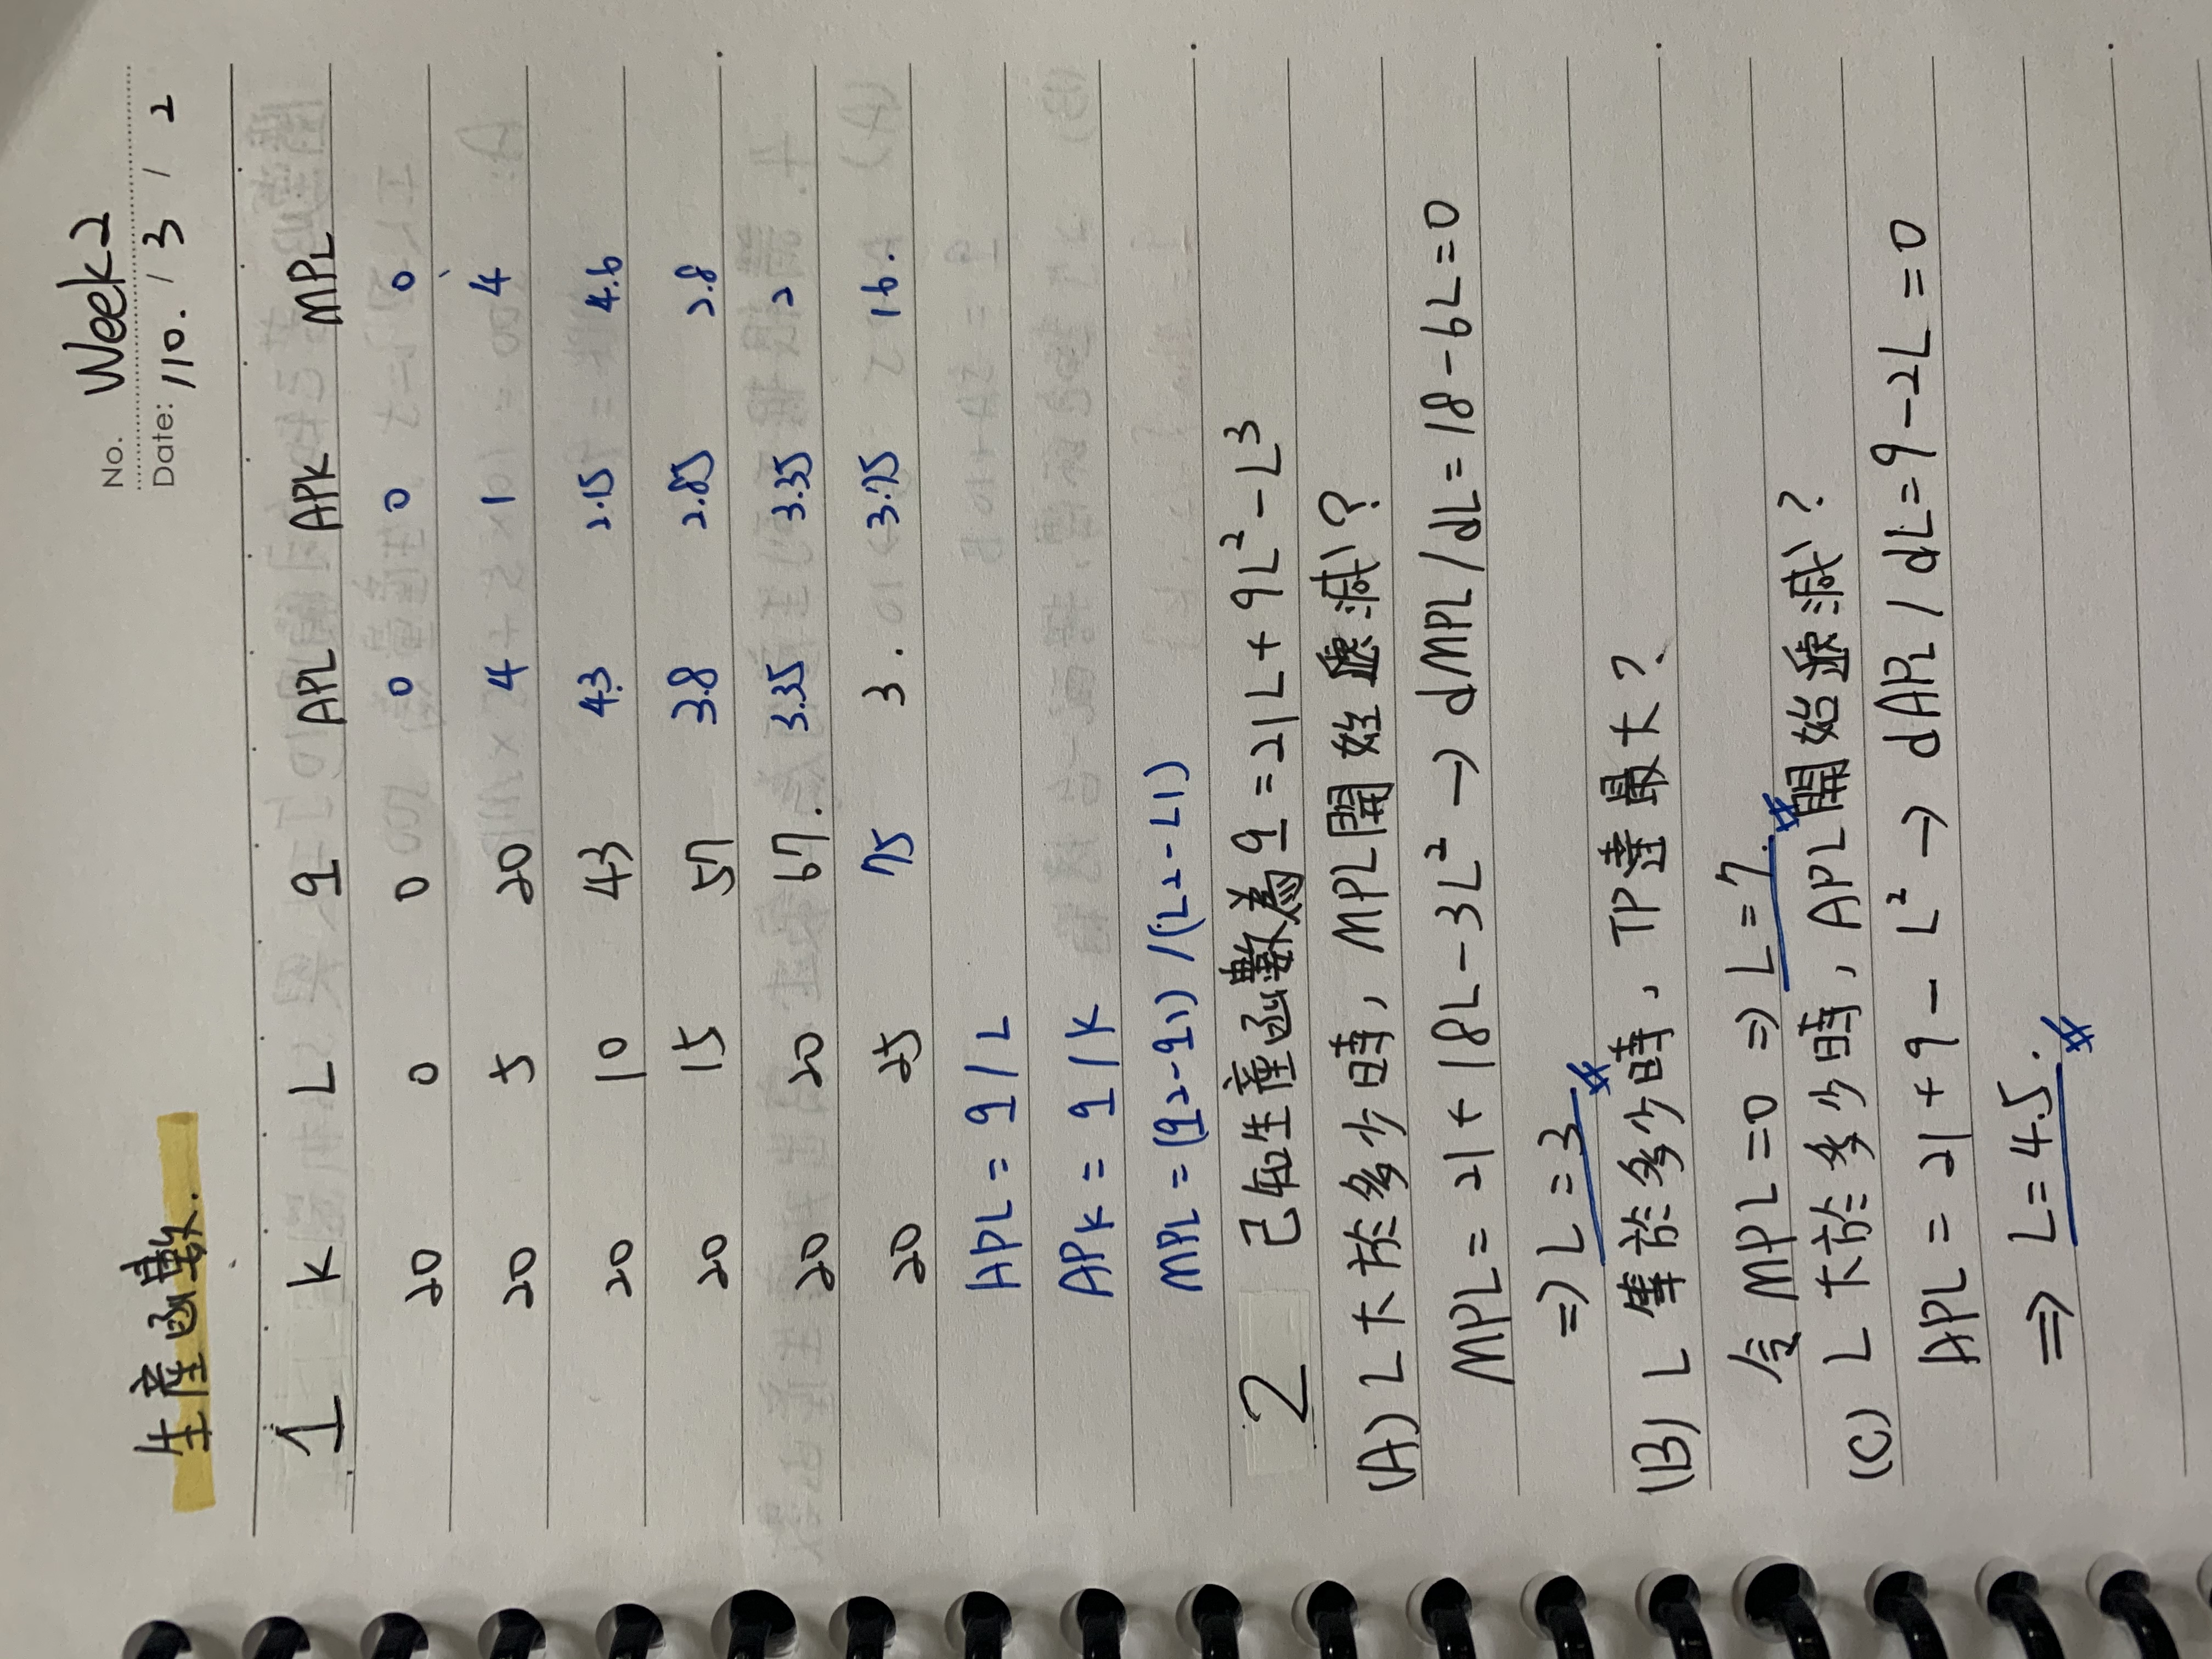 No. Week2
Date: 110. / 3 / 2
生產函數.
1 K L q APL APK MPL
20 0 0 0 0 0
20 5 20 4 1 4
20 10 43 4.3 2.15 4.6
20 15 57 3.8 2.85 2.8
20 20 67. 3.35 3.35 2
20 25 75 3. 3.75 16.
APL = q / L
APK = q / K
MPL = (q2-q1) / (L2-L1)
2 已知生產函數為 q = 21L + 9L² - L³
(A) L大於多少時, MPL開始遞減?
MPL = 21 + 18L - 3L² → dMPL / dL = 18 - 6L = 0
⇒ L = 3 #
(B) L 等於多少時, TP達最大?
令 MPL = 0 ⇒ L = 7. #
(C) L 大於多少時, APL開始遞減?
APL = 21 + 9 - L² → dAPL / dL = 9 - 2L = 0
⇒ L = 4.5. #